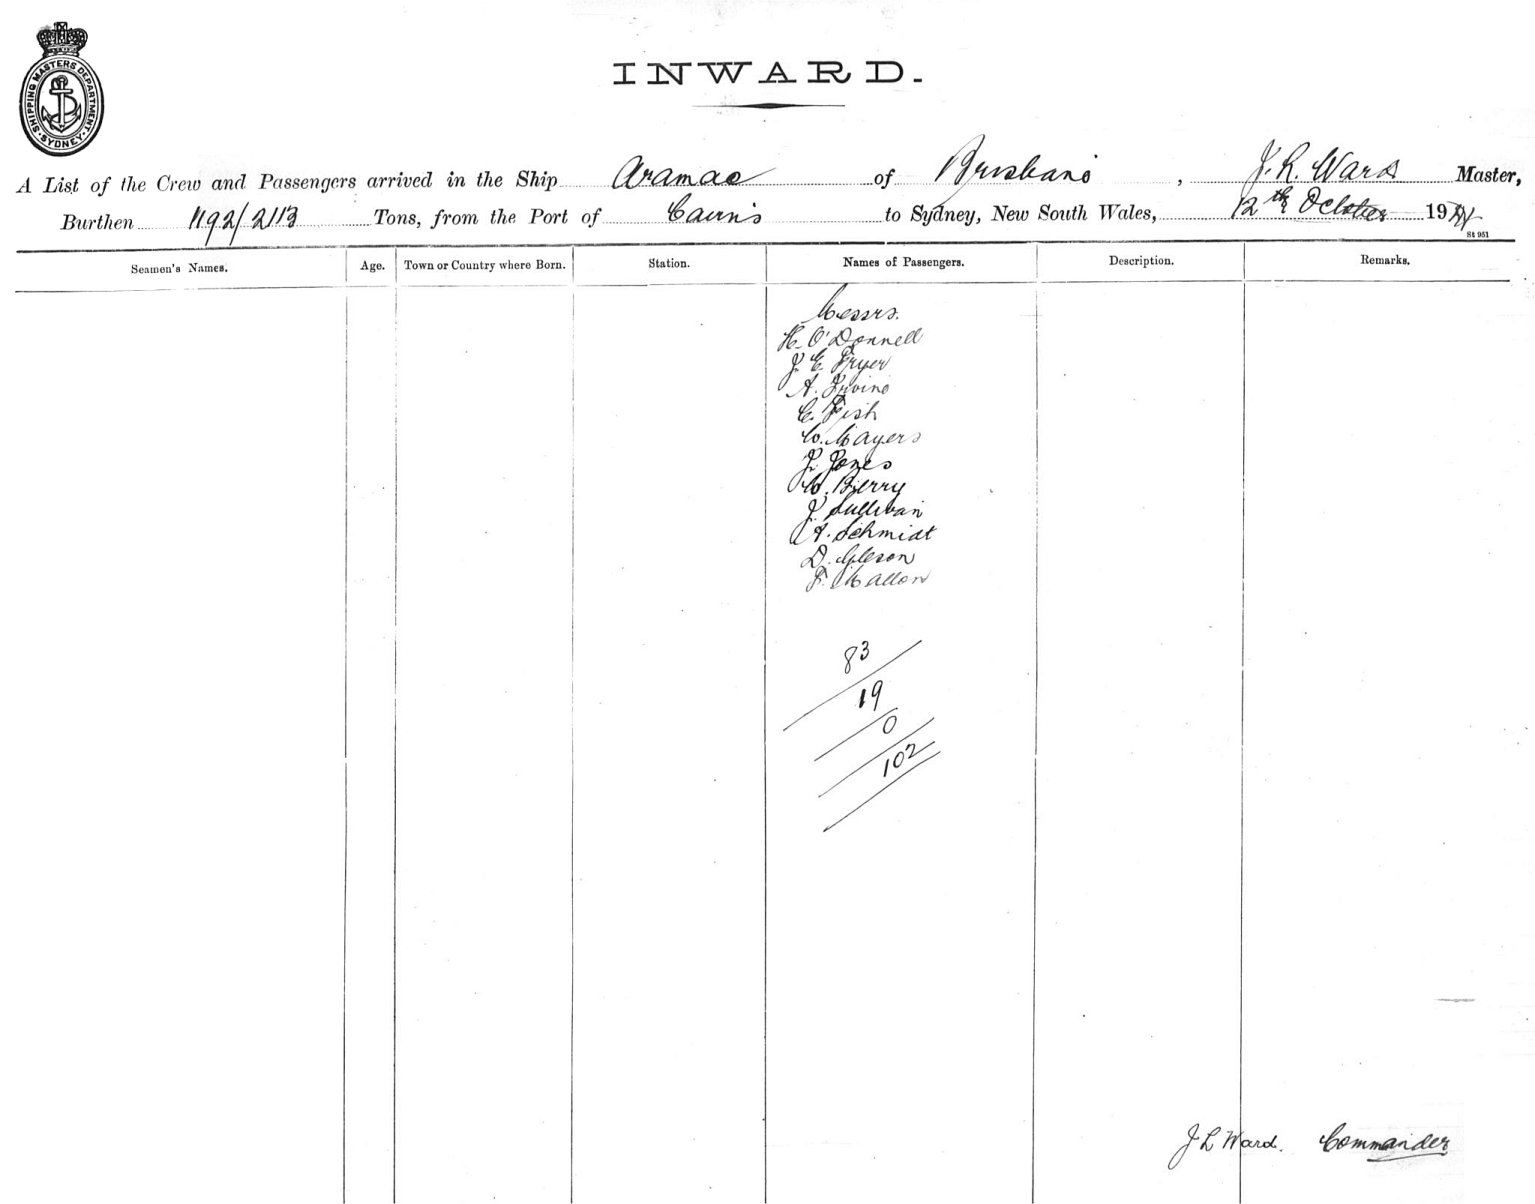 SHIPPING MASTERS DEPARTMENT. SYDNEY.
INWARD.
A List of the Crew and Passengers arrived in the Ship Aramac of Brisbane, J. R. Ward Master,
Burthen 1192/2113 Tons, from the Port of Cairns to Sydney, New South Wales, 12th October 19
St 951
Seamen's Names. Age. Town or Country where Born. Station. Names of Passengers. Description. Remarks.
Messrs.
H. O'Donnell
J. E. Fryer
A. Irvine
C. Fish
W. Mayers
J. Jones
W. Bierry
J. Sullivan
A. Schmidt
D. Gleson
F. Mallon
83
19
0
102
J L Ward. Commander